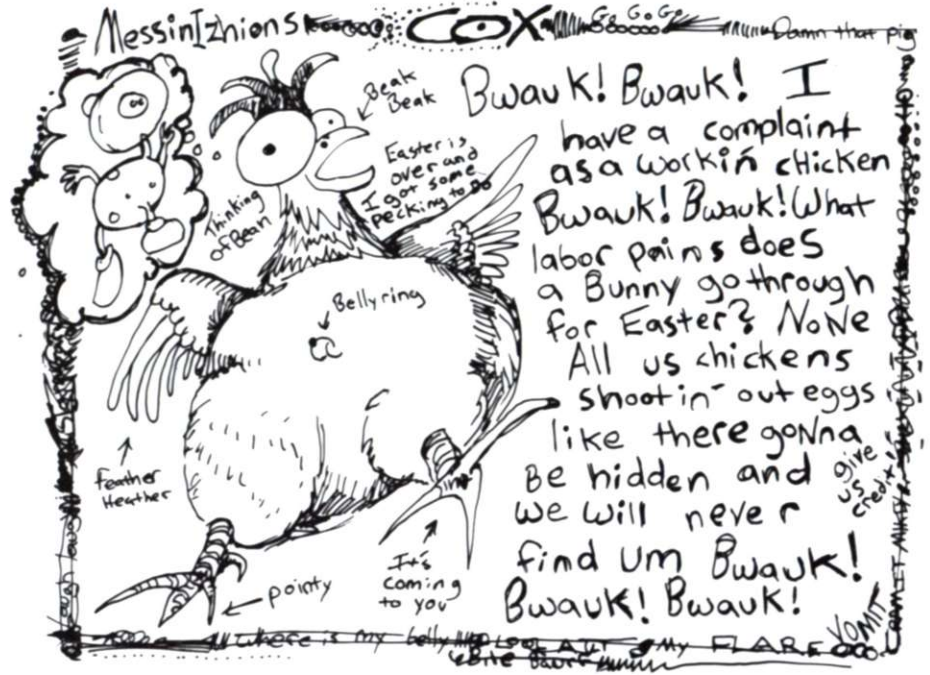 MessinIzhions
COX
Go Go Go
Damn that pig
Beak
Beak
Easter is
over and
I got some
pecking to do
Thinking
of Bean
Belly ring
Feather
Heather
pointy
It's
coming
to you
Bwauk! Bwauk! I
have a complaint
as a workin chicken
Bwauk! Bwauk! What
labor pains does
a Bunny go through
for Easter? NoNe
All us chickens
shootin out eggs
like there goNna
Be hidden and
we will never
find um Bwauk!
Bwauk! Bwauk!
give
us
credit!
where is my belly
LOOK AT
my FLARE
Bite
VOMIT